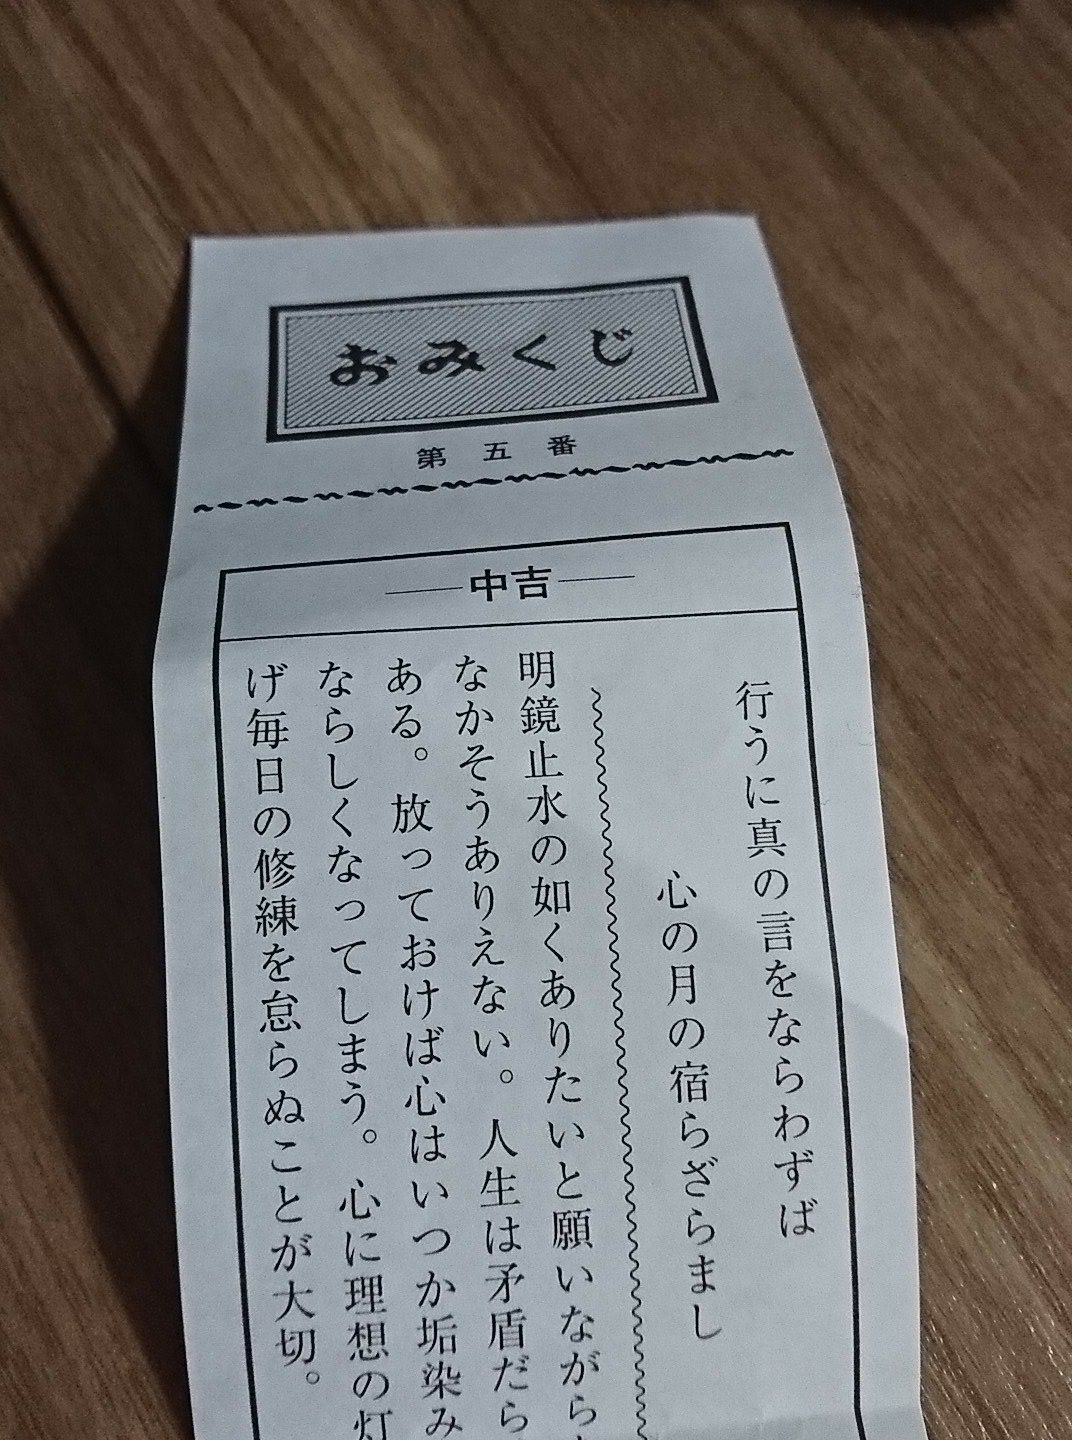 おみくじ
第五番
中吉
行うに真の言をならわずば
心の月の宿らざらまし
明鏡止水の如くありたいと願いながら
なかそうありえない。人生は矛盾だら
ある。放っておけば心はいつか垢染み
ならしくなってしまう。心に理想の灯
げ毎日の修練を怠らぬことが大切。